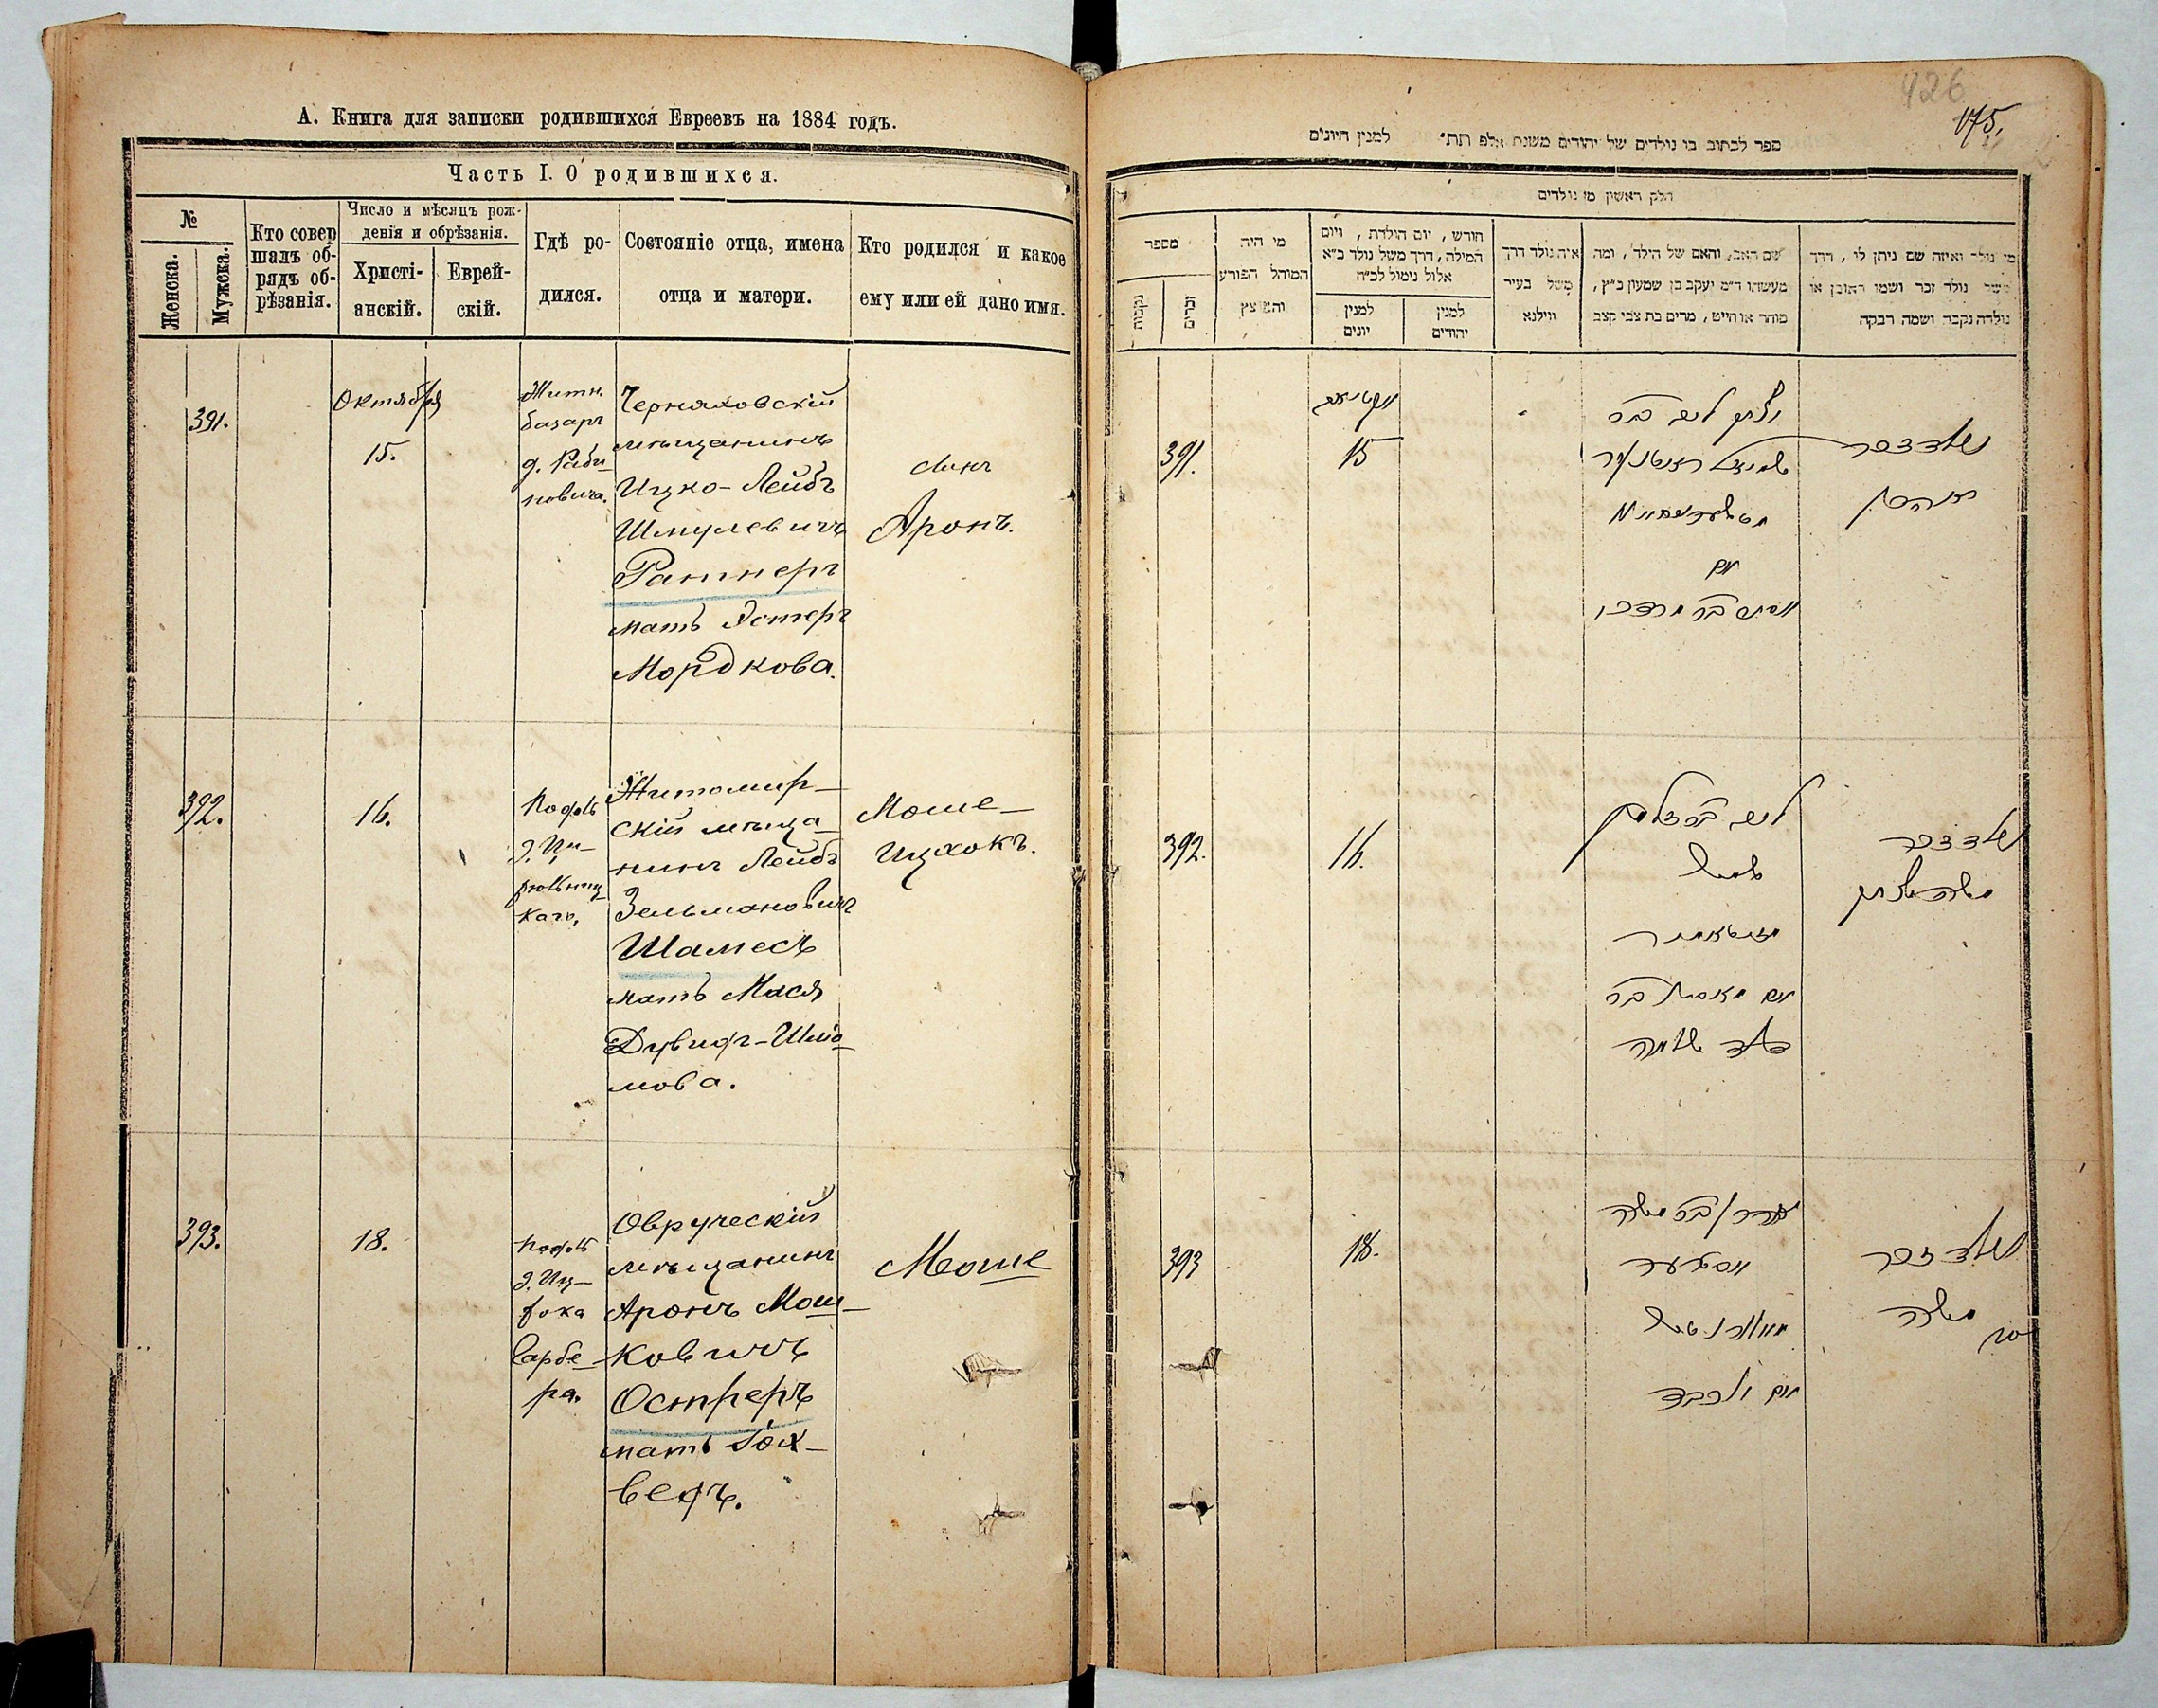 А. Книга для записки родившихся Евреевъ на 1884 годъ.
Часть I. О родившихся.
№
Женска.
Мужска.
Кто совер
шалъ об-
рядъ об-
рѣзанія.
Число и мѣсяцъ рож-
денія и обрѣзанія.
Христі-
анскій.
Еврей-
скій.
Гдѣ ро-
дился.
Состояніе отца, имена
отца и матери.
Кто родился и какое
ему или ей дано имя.
391.
Октября
15.
Житн.
базаръ
д. Раби-
новича.
Черняховскій
мѣщанинъ
Ицко-Лейбъ
Шмулевичъ
Ратнеръ
мать Эстеръ
Мордкова.
сынъ
Аронъ.
392.
16.
Подолъ
Житомир-
скій мѣща-
нинъ Лейбъ
Зельмановичъ
Шамесъ
мать Мася
Дувидъ-Шлио-
мова.
Моше-
Ицхокъ.
393.
18.
Подолъ
д. Иц-
хока
Сарбе-
ра.
Овруческій
мѣщанинъ
Аронъ Мош-
ковичъ
Остреръ
мать Іох-
ведъ.
Моше
426
175.
ספר לכתוב בו נולדים של יהודים משנת אלפ תת״ למנין היונים
חלק ראשון מי נולדים
מספר
נקבות
זכרים
מי היה
המוהל הפורע
והמוצץ
חודש, יום הולדת, ויום
המילה, דרך משל נולד כ״א
אלול נימול לכ״ח
למנין
יונים
למנין
יהודים
איה נולד דרך
משל בעיר
ווילנא
שם האב, והאם של הילד, ומה
מעשהו ד״מ יעקב בן שמעון כ״ץ,
סוחר או חייט, מרים בת צבי קצב
מי נולד ואיזה שם ניתן לו, דרך
משל נולד זכר ושמו ראובן או
נולדה נקבה ושמה רבקה
391.
15
יצחק ליב בר
נולד זכר
אהרן
392.
16.
ליב בר זלמן
נולד זכר
משה יצחק
דוד שלמה
393
18.
אהרן בר משה
נולד זכר
משה